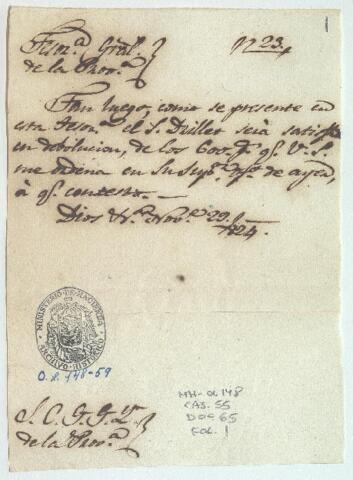 1
Tesor.ª Gral.
de la Prov.ª
N. 23.
Tan luego, como se presente en
esta Tesor.ª el S. Drillet será satisfho
en debolucion, de los 600 p.s q.e V. S.
me ordena en Su Sup.r of.o de ayer,
á q.e contesto.
Dios &.ª Nov.e 29. 1824.
MINISTERIO DE HACIENDA
ARCHIVO HISTORICO
O.L. 148-59
MH-OL 148
CAJ. 55
DOC 65
FOL. 1
S. C. G. G. Y.
de la Prov.ª